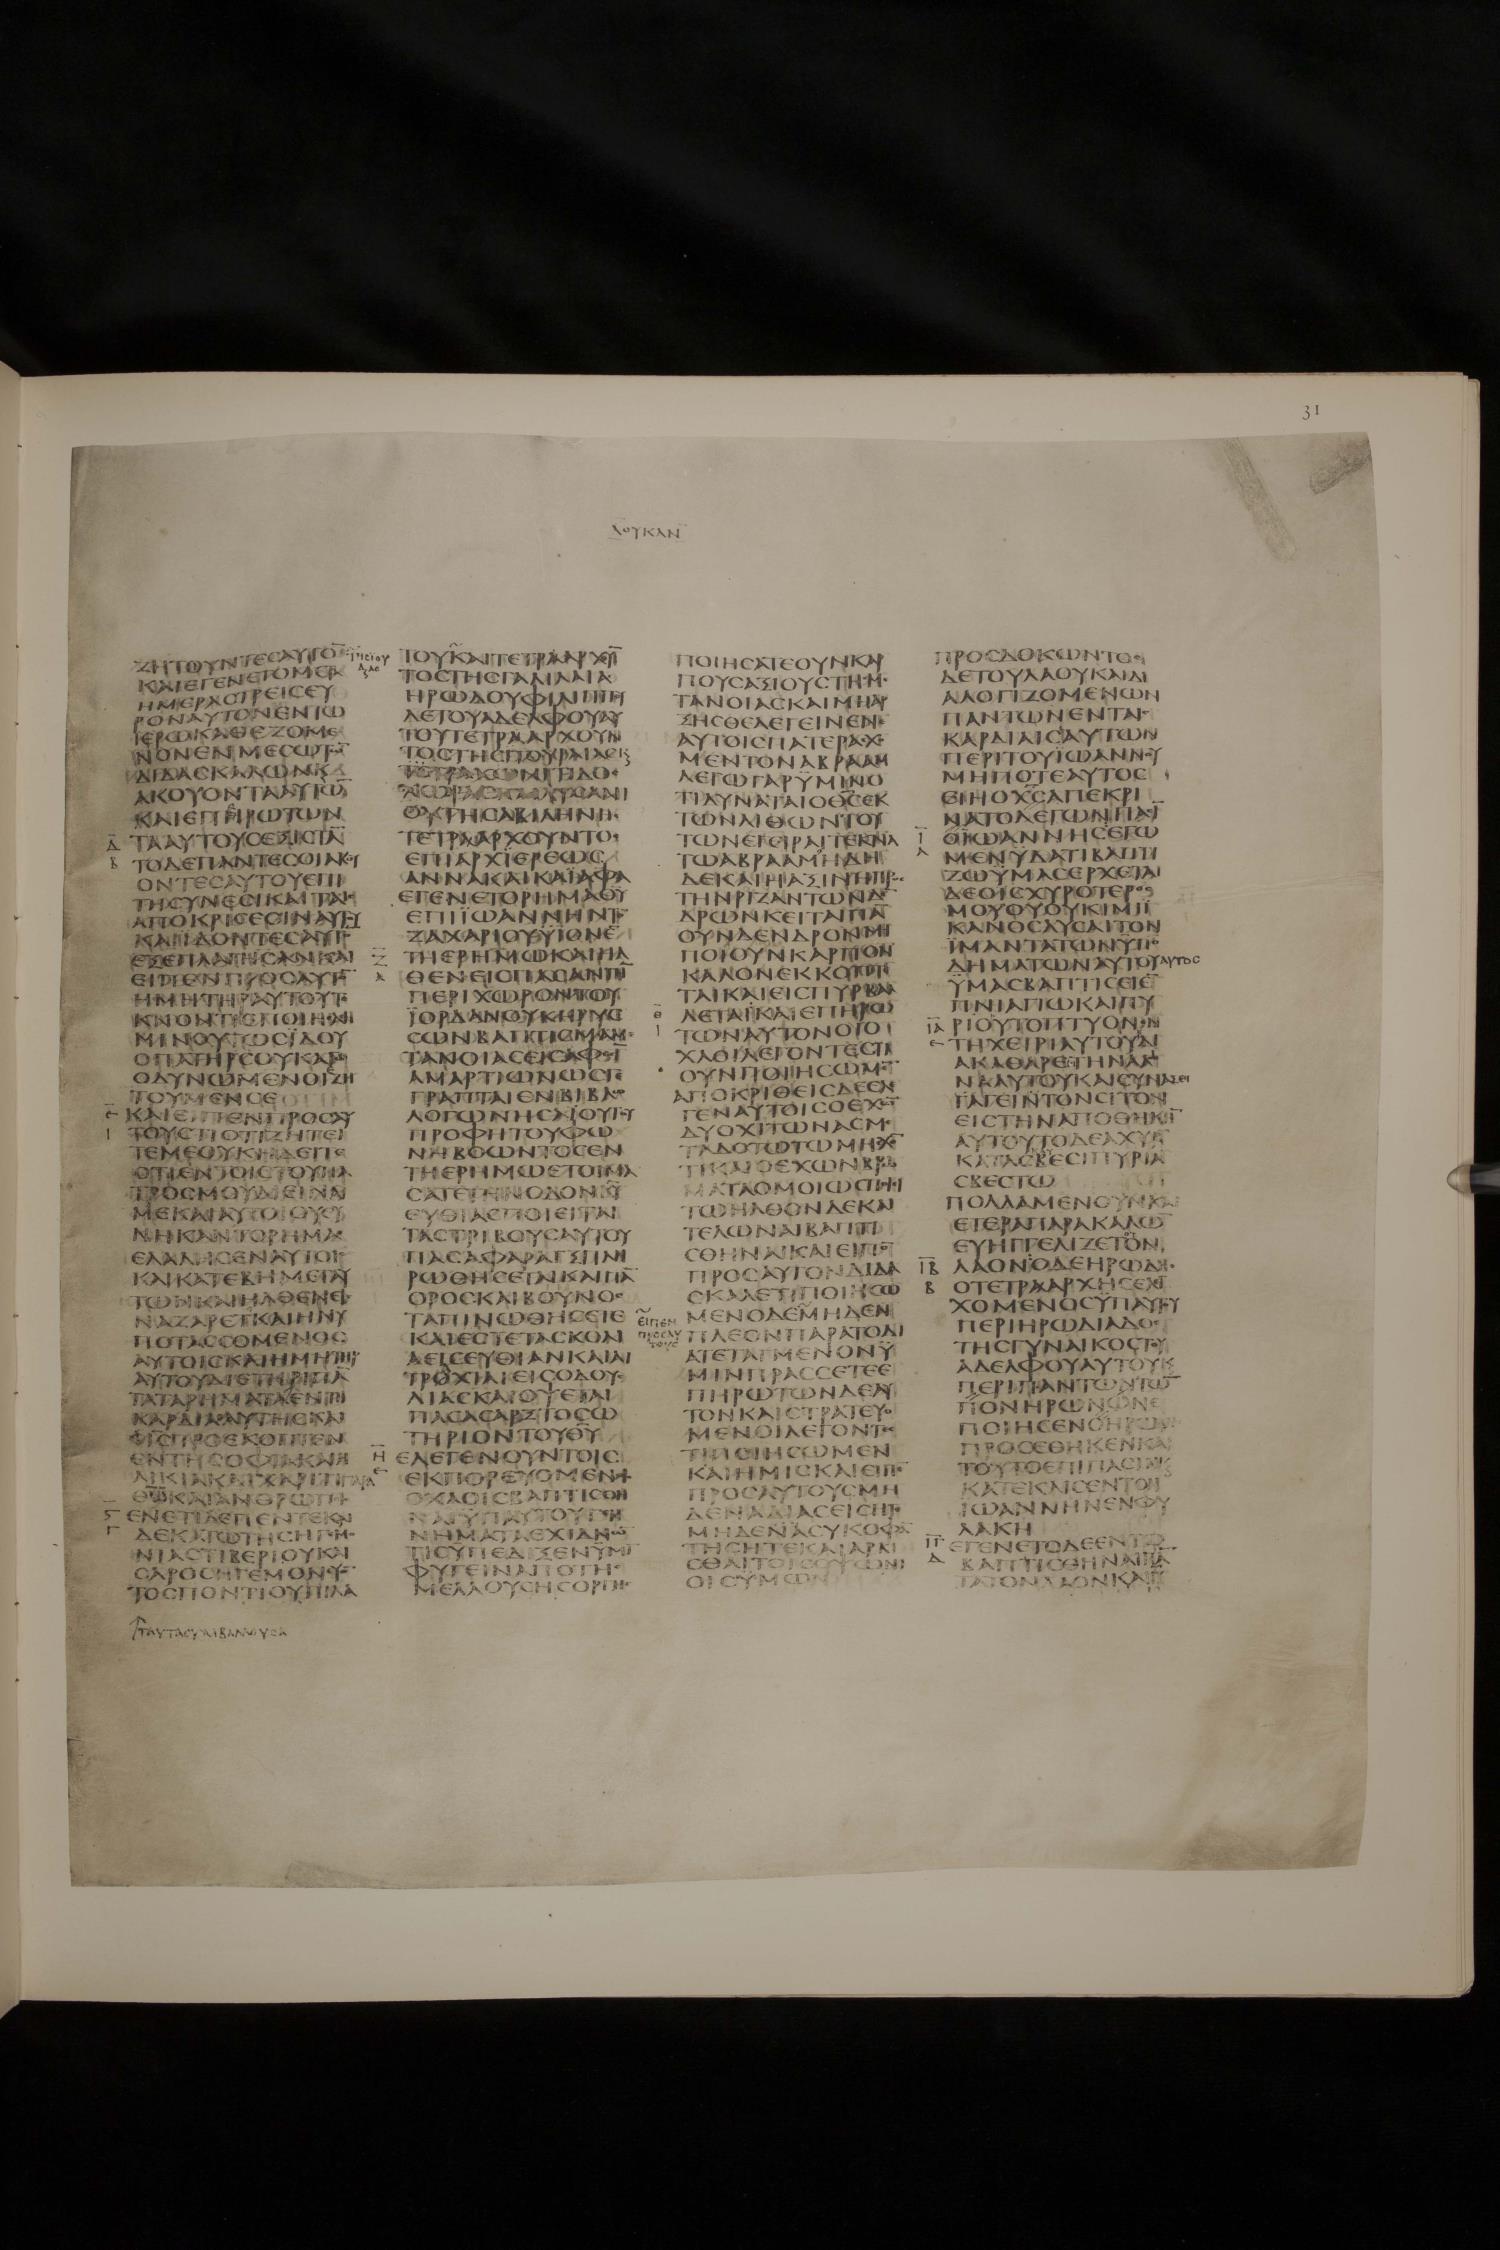 31
ΛΟΥΚΑΝ
ΖΗΤΟΥΝΤΕΣΑΥΤΟ̅
ΚΑΙΕΓΕΝΕΤΟΜΕΤΑ
ΗΜΕΡΑΣΤΡΕΙΣΕΥ
ΡΟΝΑΥΤΟΝΕΝΤΩ
ΙΕΡΩΚΑΘΕΖΟΜΕ
ΝΟΝΕΝΜΕΣΩΤΩ̅
ΔΙΔΑΣΚΑΛΩΝΚΑΙ
ΑΚΟΥΟΝΤΑΑΥΤΩ̅
ΚΑΙΕΠΗΡΩΤΩΝ
ΤΑΑΥΤΟΥΣΕΞΙΣΤΑ̅
ΤΟΔΕΠΑΝΤΕΣΟΙΑΚΟΥ
ΟΝΤΕΣΑΥΤΟΥΕΠΙ
ΤΗΣΥΝΕΣΙΚΑΙΤΑΙΣ
ΑΠΟΚΡΙΣΕΣΙΝΑΥΤΟΥ
ΚΑΙΙΔΟΝΤΕΣΑΥΤΟ̅
ΕΞΕΠΛΑΓΗΣΑΝΚΑΙ
ΕΙΠΕΝΠΡΟΣΑΥΤΟ̅
ΗΜΗΤΗΡΑΥΤΟΥΤΕ
ΚΝΟΝΤΙΕΠΟΙΗΣΑΣ
ΜΙΝΟΥΤΩΣΪΔΟΥ
ΟΠΑΤΗΡΣΟΥΚΑΓΩ
ΟΔΥΝΩΜΕΝΟΙΖΗ
ΤΟΥΜΕΝΣΕ
ΚΑΙΕΙΠΕΝΠΡΟΣΑΥ
ΤΟΥΣΤΙΟΤΙΖΗΤΕΙ
ΤΕΜΕΟΥΚΗΔΕΙΤΕ
ΟΤΙΕΝΤΟΙΣΤΟΥΠΑ
ΤΡΟΣΜΟΥΔΕΙΕΙΝΑΙ
ΜΕΚΑΙΑΥΤΟΙΟΥΣΥ
ΝΗΚΑΝΤΟΡΗΜΑΟ
ΕΛΑΛΗΣΕΝΑΥΤΟΙΣ
ΚΑΙΚΑΤΕΒΗΜΕΤΑΥ
ΤΩΝΚΑΙΗΛΘΕΝΕΙΣ
ΝΑΖΑΡΕΤΚΑΙΗΝΥ
ΠΟΤΑΣΣΟΜΕΝΟΣ
ΑΥΤΟΙΣΚΑΙΗΜΗΤΗΡ
ΑΥΤΟΥΔΙΕΤΗΡΙΠΑ̅
ΤΑΤΑΡΗΜΑΤΑΕΝΤΗ
ΚΑΡΔΙΑΑΥΤΗΣΚΑΙ
ΙΣΠΡΟΕΚΟΠΤΕΝ
ΕΝΤΗΣΟΦΙΑΚΑΙΗ
ΛΙΚΙΑΚΑΙΧΑΡΙΤΙΠΑΡΑ
ΘΩ̅ΚΑΙΑΝΘΡΩΠΟΙΣ
ΕΝΕΤΙΔΕΠΕΝΤΕΚΑΙ
ΔΕΚΑΤΩΤΗΣΗΓΕΜΟ
ΝΙΑΣΤΙΒΕΡΙΟΥΚΑΙ
ΣΑΡΟΣΗΓΕΜΟΝΕΥΟ̅
ΤΟΣΠΟΝΤΙΟΥΠΙΛΑ
ΤΑΥΤΑΣΥΝΒΑΛΛΟΥΣΑ
ΤΟΥΚΑΙΤΕΤΡΑΑΡΧΟΥ̅
ΤΟΣΤΗΣΓΑΛΙΛΑΙΑΣ
ΗΡΩΔΟΥΦΙΛΙΠΠΟΥ
ΔΕΤΟΥΑΔΕΛΦΟΥΑΥ
ΤΟΥΤΕΤΡΑΑΡΧΟΥΝ
ΤΟΣΤΗΣΙΤΟΥΡΑΙΑΣ
ΟΥΤΗΣΑΒΙΛΗΝΗΣ
ΤΕΤΡΑΑΡΧΟΥΝΤΟΣ
ΕΠΙΑΡΧΪΕΡΕΩΣ
ΑΝΝΑΚΑΙΚΑΪΑΦΑ
ΕΓΕΝΕΤΟΡΗΜΑΘΥ̅
ΕΠΙΪΩΑΝΝΗΝΤΟ̅
ΖΑΧΑΡΙΟΥΫΪΟΝΕ̅
ΤΗΕΡΗΜΩΚΑΙΗΛ
ΘΕΝΕΙΣΠΑΣΑΝΤΗ̅
ΠΕΡΙΧΩΡΟΝΤΟΥ
ΪΟΡΔΑΝΟΥΚΗΡΥΣ
ΣΩΝΒΑΠΤΙΣΜΑΜΕ
ΤΑΝΟΙΑΣΕΙΣΑΦΕΣΙ̅
ΑΜΑΡΤΙΩΝΩΣΓΕ
ΓΡΑΠΤΑΙΕΝΒΙΒΛΩ
ΛΟΓΩΝΗΣΑΪΟΥΤΟΥ
ΠΡΟΦΗΤΟΥΦΩ
ΝΗΒΟΩΝΤΟΣΕΝ
ΤΗΕΡΗΜΩΕΤΟΙΜΑ
ΣΑΤΕΤΗΝΟΔΟΝΚΥ̅
ΕΥΘΙΑΣΠΟΙΕΙΤΑΙ
ΤΑΣΤΡΙΒΟΥΣΑΥΤΟΥ
ΠΑΣΑΦΑΡΑΓΞΠΛΗ
ΡΩΘΗΣΕΤΑΙΚΑΙΠΑ̅
ΟΡΟΣΚΑΙΒΟΥΝΟΣ
ΤΑΠΙΝΩΘΗΣΕΤΕ
ΚΑΙΕΣΤΕΤΑΣΚΟΛΙ
ΑΕΙΣΕΥΘΙΑΝΚΑΙΑΙ
ΤΡΑΧΙΑΙΕΙΣΟΔΟΥΣ
ΛΙΑΣΚΑΙΟΨΕΤΑΙ
ΠΑΣΑΣΑΡΞΤΟΣΩ
ΤΗΡΙΟΝΤΟΥΘΥ̅
ΕΛΕΓΕΝΟΥΝΤΟΙΣ
ΕΚΠΟΡΕΥΟΜΕΝΟΙΣ
ΟΧΛΟΙΣΒΑΠΤΙΣΘΗ
ΝΑΙΫΠΑΥΤΟΥΓΕΝ
ΝΗΜΑΤΑΕΧΙΔΝΩ̅
ΤΙΣΫΠΕΔΙΞΕΝΫΜΙ̅
ΦΥΓΕΙΝΑΠΟΤΗΣ
ΜΕΛΛΟΥΣΗΣΟΡΓΗΣ
ΕΙΠΕΝ
ΠΡΟΣΑΥ
ΤΟΥΣ
ΠΟΙΗΣΑΤΕΟΥΝΚΑΡ
ΠΟΥΣΑΞΙΟΥΣΤΗΣΜΕ
ΤΑΝΟΙΑΣΚΑΙΜΗΑΡ
ΞΗΣΘΕΛΕΓΕΙΝΕΝΕ
ΑΥΤΟΙΣΠΑΤΕΡΑΕΧΟ
ΜΕΝΤΟΝΑΒΡΑΑΜ
ΛΕΓΩΓΑΡΫΜΙΝΟ
ΤΙΔΥΝΑΤΑΙΟΘ̅Σ̅ΕΚ
ΤΩΝΛΙΘΩΝΤΟΥ
ΤΩΝΕΓΕΙΡΑΙΤΕΚΝΑ
ΤΩΑΒΡΑΑΜΗΔΗ
ΔΕΚΑΙΗΑΞΙΝΗΠΡΟΣ
ΤΗΝΡΙΖΑΝΤΩΝΔΕ̅
ΔΡΩΝΚΕΙΤΑΙΠΑ̅
ΟΥΝΔΕΝΔΡΟΝΜΗ
ΠΟΙΟΥΝΚΑΡΠΟΝ
ΚΑΛΟΝΕΚΚΟΠΤΕ
ΤΑΙΚΑΙΕΙΣΠΥΡΒΑΛ
ΛΕΤΑΙΚΑΙΕΠΗΡΩ
ΤΩΝΑΥΤΟΝΟΙΟ
ΧΛΟΙΛΕΓΟΝΤΕΣΤΙ
ΟΥΝΠΟΙΗΣΩΜΕ̅
ΑΠΟΚΡΙΘΕΙΣΔΕΕΛΕ
ΓΕΝΑΥΤΟΙΣΟΕΧΩ̅
ΔΥΟΧΙΤΩΝΑΣΜΕ
ΤΑΔΟΤΩΤΩΜΗΕΧΟ̅
ΤΙΚΑΙΟΕΧΩΝΒΡΩ
ΜΑΤΑΟΜΟΙΩΣΠΟΙΕΙ
ΤΩΗΛΘΟΝΔΕΚΑΙ
ΤΕΛΩΝΑΙΒΑΠΤΙ
ΣΘΗΝΑΙΚΑΙΕΙΠΟ̅
ΠΡΟΣΑΥΤΟΝΔΙΔΑ
ΣΚΑΛΕΤΙΠΟΙΗΣΩ
ΜΕΝΟΔΕΜΗΔΕΝ
ΠΛΕΟΝΠΑΡΑΤΟΔΙ
ΑΤΕΤΑΓΜΕΝΟΝΫ
ΜΙΝΠΡΑΣΣΕΤΕΕ
ΠΗΡΩΤΩΝΔΕΑΥ
ΤΟΝΚΑΙΣΤΡΑΤΕΥΟ
ΜΕΝΟΙΛΕΓΟΝΤΕΣ
ΤΙΠΟΙΗΣΩΜΕΝ
ΚΑΙΗΜΙΣΚΑΙΕΙΠΕ̅
ΠΡΟΣΑΥΤΟΥΣΜΗ
ΔΕΝΑΔΙΑΣΕΙΣΗΤΕ
ΜΗΔΕΝΑΣΥΚΟΦΑ̅
ΤΗΣΗΤΕΚΑΙΑΡΚΙ
ΣΘΑΙΤΟΙΣΟΨΩΝΙ
ΟΙΣΫΜΩΝ
ΠΡΟΣΔΟΚΩΝΤΟΣ
ΔΕΤΟΥΛΑΟΥΚΑΙΔΙ
ΑΛΟΓΙΖΟΜΕΝΩΝ
ΠΑΝΤΩΝΕΝΤΑΙΣ
ΚΑΡΔΙΑΙΣΑΥΤΩΝ
ΠΕΡΙΤΟΥΪΩΑΝΝΟΥ
ΜΗΠΟΤΕΑΥΤΟΣ
ΕΙΗΟΧ̅Σ̅ΑΠΕΚΡΙ
ΝΑΤΟΛΕΓΩΝΠΑΣΙ̅
ΟΪΩΑΝΝΗΣΕΓΩ
ΜΕΝΫΔΑΤΙΒΑΠΤΙ
ΖΩΫΜΑΣΕΡΧΕΤΑΙ
ΔΕΟΙΣΧΥΡΟΤΕΡΟΣ
ΜΟΥΟΥΟΥΚΙΜΪ
ΚΑΝΟΣΛΥΣΑΙΤΟΝ
ΪΜΑΝΤΑΤΩΝΥΠΟ
ΔΗΜΑΤΩΝΑΥΤΟΥΑΥΤΟΣ
ΫΜΑΣΒΑΠΤΙΣΕΙΕ̅
ΠΝ̅ΙΑΓΙΩΚΑΙΠΥ
ΡΙΟΥΤΟΠΤΥΟΝΕΝ
ΤΗΧΕΙΡΙΑΥΤΟΥΔΙ
ΑΚΑΘΑΡΕΤΗΝΑΛΩ
ΝΑΑΥΤΟΥΚΑΙΣΥΝΑΞΕΙ
ΓΑΓΕΙΝΤΟΝΣΙΤΟΝ
ΕΙΣΤΗΝΑΠΟΘΗΚΗ̅
ΑΥΤΟΥΤΟΔΕΑΧΥΡΟ̅
ΚΑΤΑΣΒΕΣΙΠΥΡΙΑ
ΣΒΕΣΤΩ
ΠΟΛΛΑΜΕΝΟΥΝΚΑΙ
ΕΤΕΡΑΠΑΡΑΚΑΛΩ̅
ΕΥΗΓΓΕΛΙΖΕΤΟΝ
ΛΑΟΝΟΔΕΗΡΩΔΗΣ
ΟΤΕΤΡΑΑΡΧΗΣΕΛΕΓ
ΧΟΜΕΝΟΣΫΠΑΥΤΟΥ
ΠΕΡΙΗΡΩΔΙΑΔΟΣ
ΤΗΣΓΥΝΑΙΚΟΣΤΟΥ
ΑΔΕΛΦΟΥΑΥΤΟΥΚΑΙ
ΠΕΡΙΠΑΝΤΩΝΤΩ̅
ΠΟΝΗΡΩΝΩΝΕ
ΠΟΙΗΣΕΝΟΗΡΩΔΗΣ
ΠΡΟΣΕΘΗΚΕΝΚΑΙ
ΤΟΥΤΟΕΠΙΠΑΣΙΚΑΙ
ΚΑΤΕΚΛΙΣΕΝΤΟΝ
ΙΩΑΝΝΗΝΕΝΦΥ
ΛΑΚΗ
ΕΓΕΝΕΤΟΔΕΕΝΤΩ
ΒΑΠΤΙΣΘΗΝΑΙΠΑ̅
ΤΑΤΟΝΛΑΟΝΚΑΙΙΥ̅